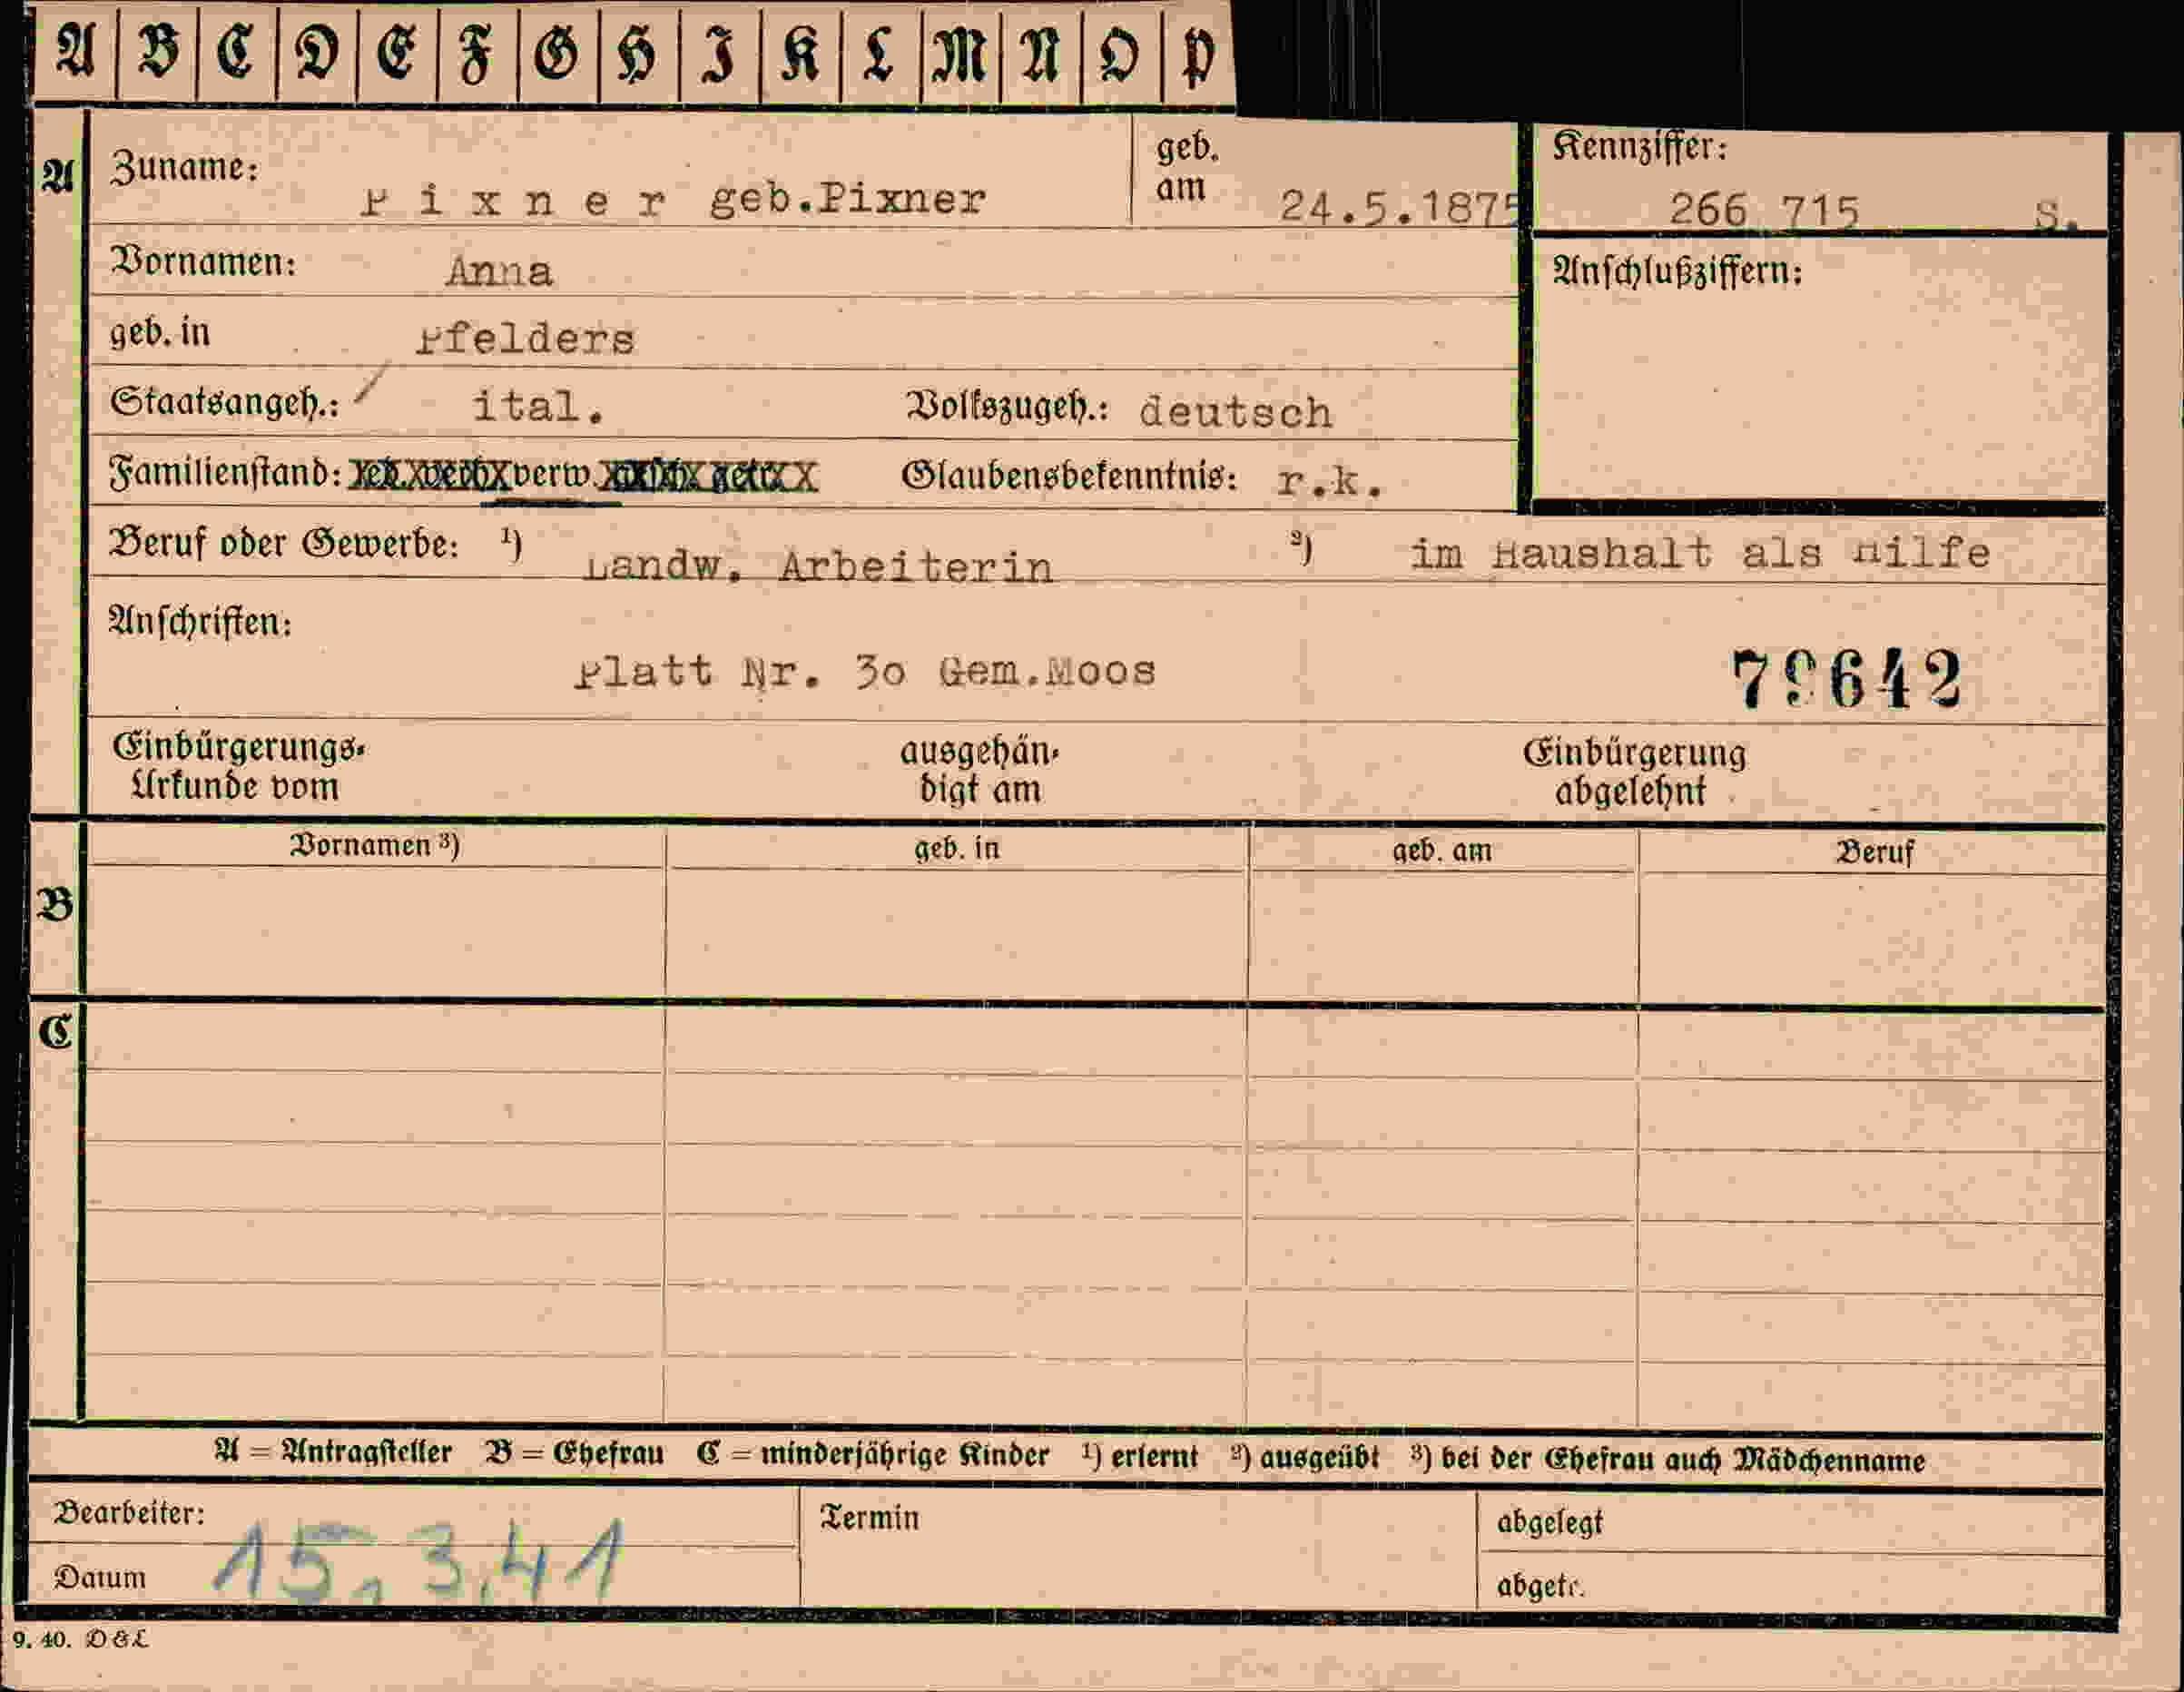 A B C D E F G H I K L M N O P
A Zuname: Pixner geb.Pixner geb. am 24.5.1875 Kennziffer: 266 715 S.
Vornamen: Anna Anschlußziffern:
geb. in Pfelders
Staatsangeh.: ital. Volkszugeh.: deutsch
Familienstand: verw. Glaubensbekenntnis: r.k.
Beruf oder Gewerbe: 1) Landw. Arbeiterin 2) im Haushalt als Hilfe
Anschriften:
Platt Nr. 30 Gem.Moos 79642
Einbürgerungs- ausgehän- Einbürgerung
Urkunde vom digt am abgelehnt
Vornamen 3) geb. in geb. am Beruf
B
C
A = Antragsteller B = Ehefrau C = minderjährige Kinder 1) erlernt 2) ausgeübt 3) bei der Ehefrau auch Mädchenname
Bearbeiter: Termin abgelegt
Datum 15.3.41 abgetr.
9. 40. D & L